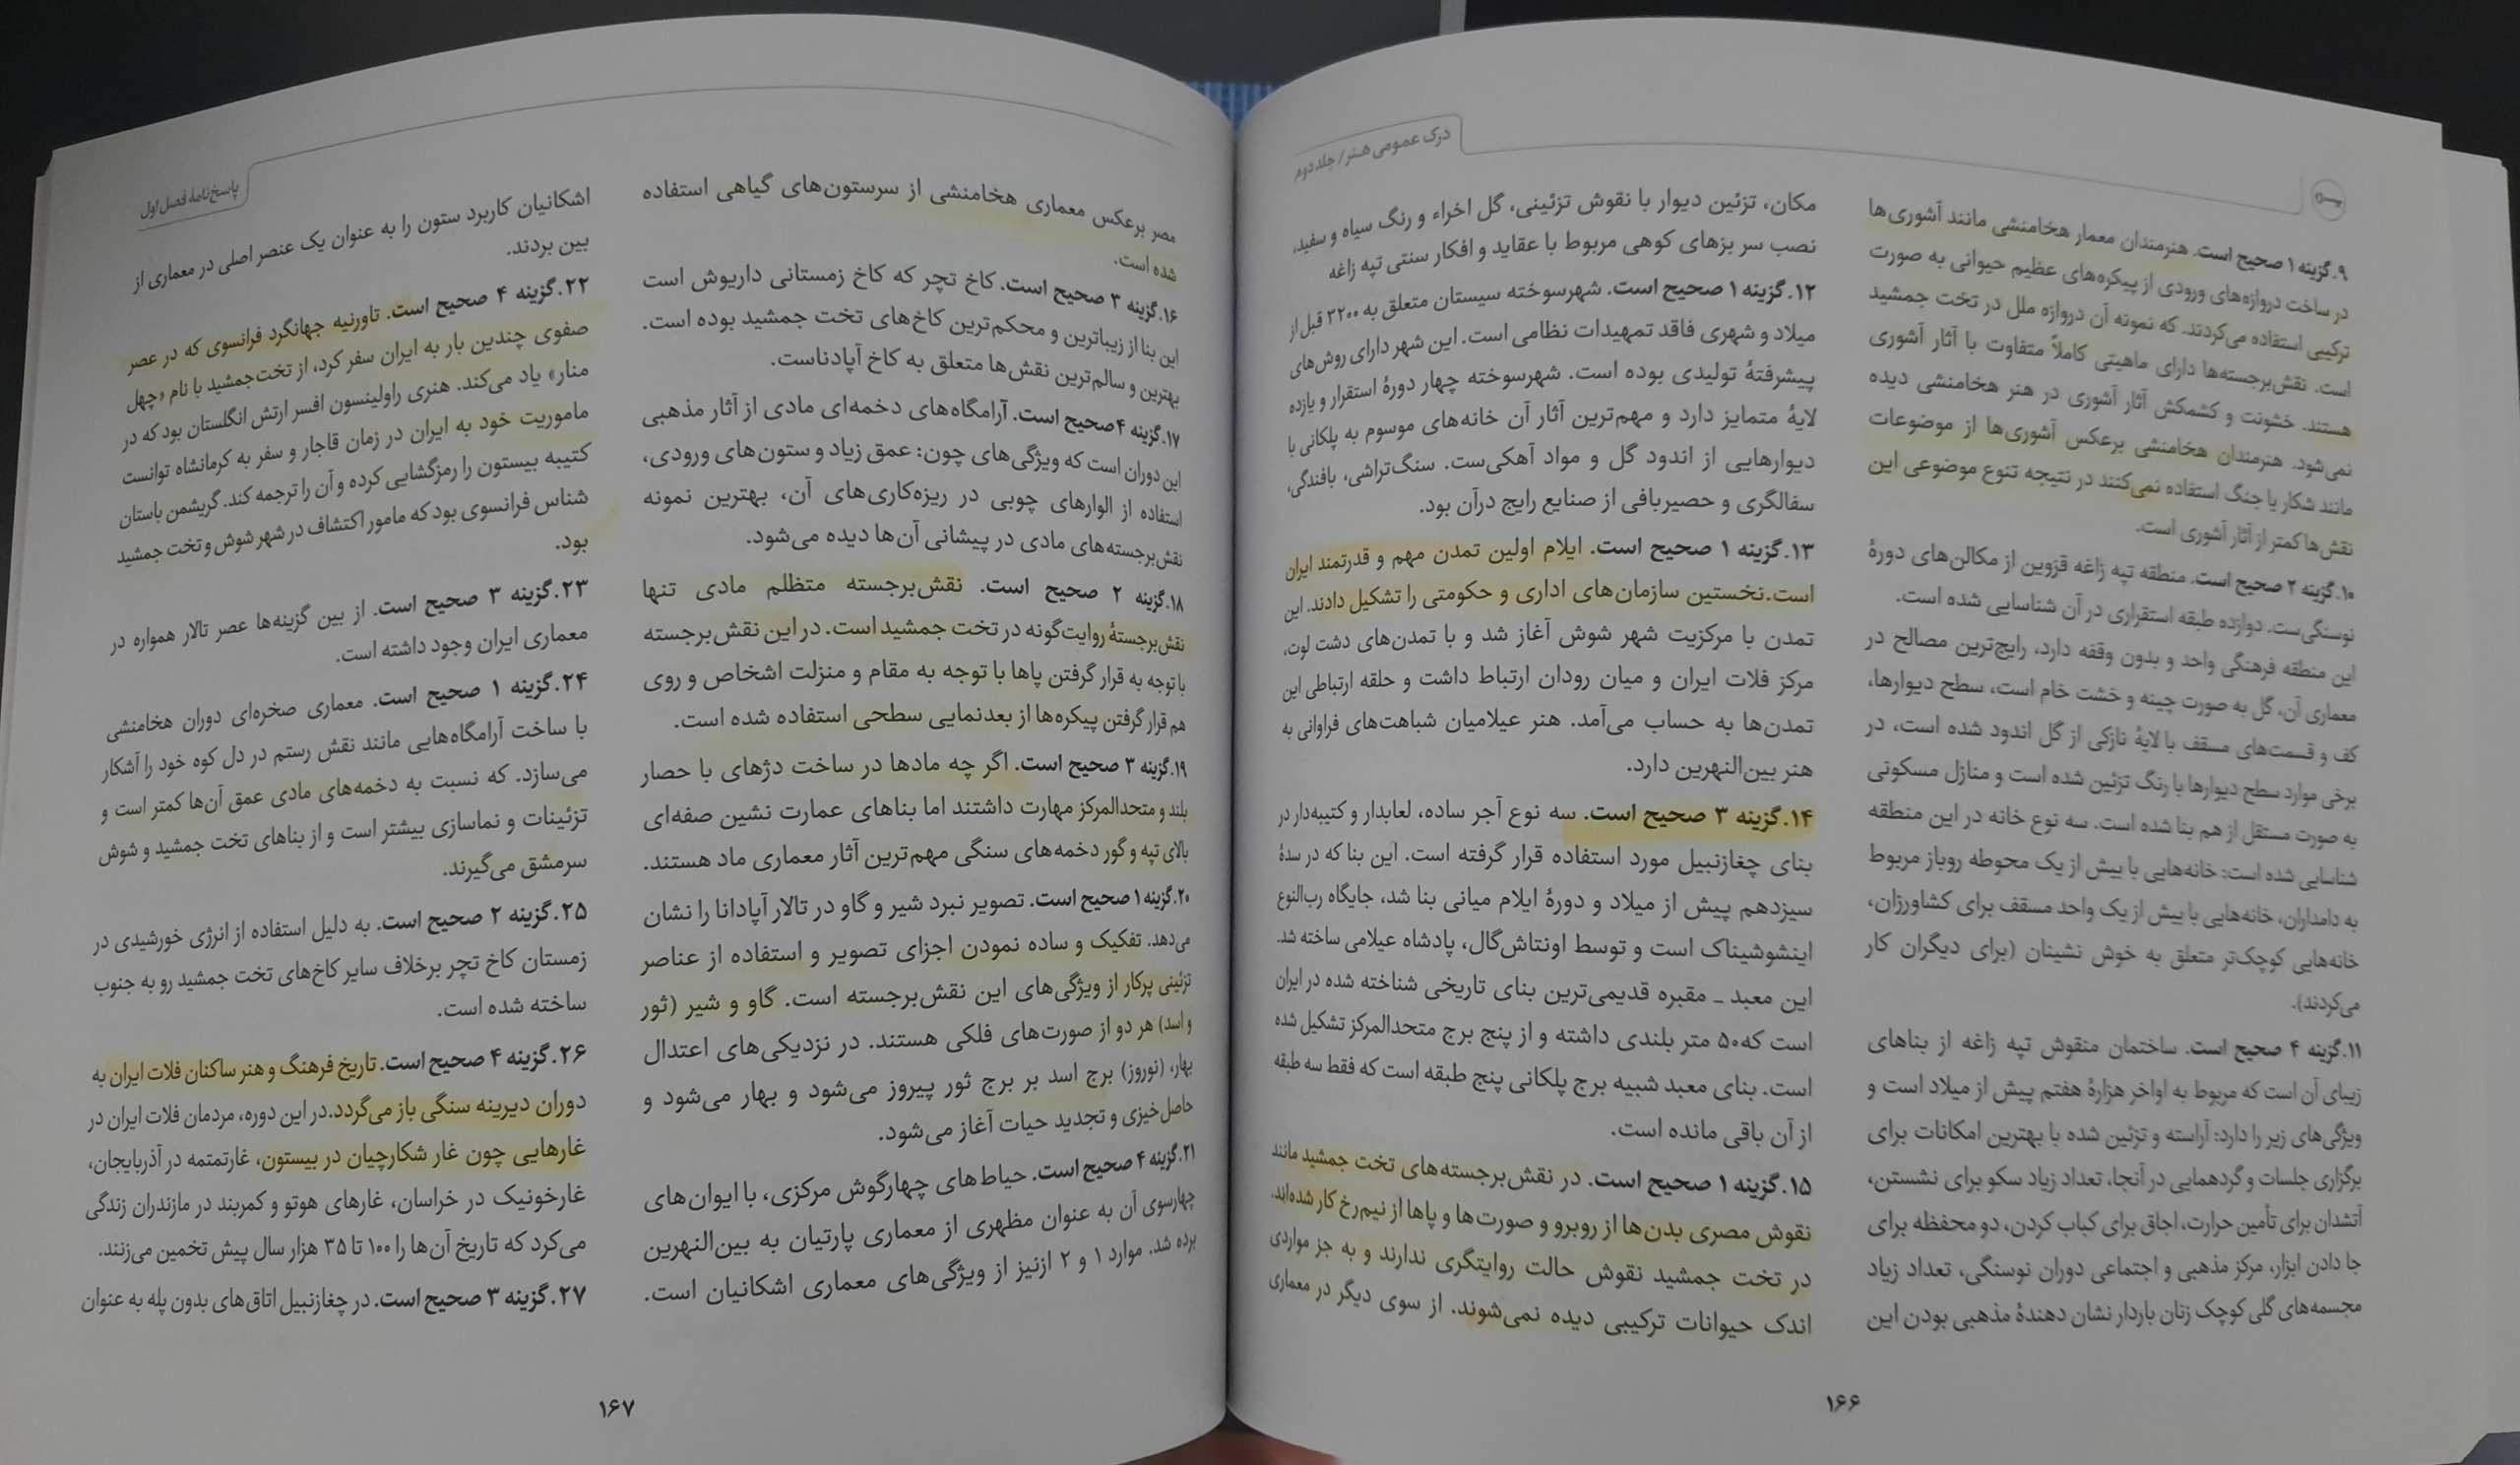 درک عمومی هنر / جلد دوم
۹.گزینه ۱ صحیح است. هنرمندان معمار هخامنشی مانند آشوری‌ها
در ساخت دروازه‌های ورودی از پیکره‌های عظیم حیوانی به صورت
ترکیبی استفاده می‌کردند. که نمونه آن دروازه ملل در تخت جمشید
است. نقش‌برجسته‌ها دارای ماهیتی کاملاً متفاوت با آثار آشوری
هستند. خشونت و کشمکش آثار آشوری در هنر هخامنشی دیده
نمی‌شود. هنرمندان هخامنشی برعکس آشوری‌ها از موضوعات
مانند شکار یا جنگ استفاده نمی‌کنند در نتیجه تنوع موضوعی این
نقش‌ها کمتر از آثار آشوری است.
۱۰.گزینه ۲ صحیح است. منطقه تپه زاغه قزوین از مکالن‌های دورهٔ
نوسنگی‌ست. دوازده طبقه استقراری در آن شناسایی شده است.
این منطقه فرهنگی واحد و بدون وقفه دارد، رایج‌ترین مصالح در
معماری آن، گل به صورت چینه و خشت خام است، سطح دیوارها،
کف و قسمت‌های مسقف با لایهٔ نازکی از گل اندود شده است، در
برخی موارد سطح دیوارها با رنگ تزئین شده است و منازل مسکونی
به صورت مستقل از هم بنا شده است. سه نوع خانه در این منطقه
شناسایی شده است: خانه‌هایی با بیش از یک محوطه روباز مربوط
به دامداران، خانه‌هایی با بیش از یک واحد مسقف برای کشاورزان،
خانه‌هایی کوچک‌تر متعلق به خوش نشینان (برای دیگران کار
می‌کردند).
۱۱.گزینه ۴ صحیح است. ساختمان منقوش تپه زاغه از بناهای
زیبای آن است که مربوط به اواخر هزارهٔ هفتم پیش از میلاد است و
ویژگی‌های زیر را دارد: آراسته و تزئین شده با بهترین امکانات برای
برگزاری جلسات و گردهمایی در آنجا، تعداد زیاد سکو برای نشستن،
آتشدان برای تأمین حرارت، اجاق برای کباب کردن، دو محفظه برای
جا دادن ابزار، مرکز مذهبی و اجتماعی دوران نوسنگی، تعداد زیاد
مجسمه‌های گلی کوچک زنان باردار نشان دهندهٔ مذهبی بودن این
مکان، تزئین دیوار با نقوش تزئینی، گل اخراء و رنگ سیاه و سفید،
نصب سر بزهای کوهی مربوط با عقاید و افکار سنتی تپه زاغه
۱۲.گزینه ۱ صحیح است. شهرسوخته سیستان متعلق به ۳۲۰۰ قبل از
میلاد و شهری فاقد تمهیدات نظامی است. این شهر دارای روش‌های
پیشرفتهٔ تولیدی بوده است. شهرسوخته چهار دورهٔ استقرار و یازده
لایهٔ متمایز دارد و مهم‌ترین آثار آن خانه‌های موسوم به پلکانی با
دیوارهایی از اندود گل و مواد آهکی‌ست. سنگ‌تراشی، بافندگی،
سفالگری و حصیربافی از صنایع رایج درآن بود.
۱۳.گزینه ۱ صحیح است. ایلام اولین تمدن مهم و قدرتمند ایران
است.نخستین سازمان‌های اداری و حکومتی را تشکیل دادند. این
تمدن با مرکزیت شهر شوش آغاز شد و با تمدن‌های دشت لوت،
مرکز فلات ایران و میان رودان ارتباط داشت و حلقه ارتباطی این
تمدن‌ها به حساب می‌آمد. هنر عیلامیان شباهت‌های فراوانی به
هنر بین‌النهرین دارد.
۱۴.گزینه ۳ صحیح است. سه نوع آجر ساده، لعابدار و کتیبه‌دار در
بنای چغازنبیل مورد استفاده قرار گرفته است. این بنا که در سدهٔ
سیزدهم پیش از میلاد و دورهٔ ایلام میانی بنا شد، جایگاه رب‌النوع
اینشوشیناک است و توسط اونتاش‌گال، پادشاه عیلامی ساخته شد.
این معبد ـ مقبره قدیمی‌ترین بنای تاریخی شناخته شده در ایران
است که۵۰ متر بلندی داشته و از پنج برج متحدالمرکز تشکیل شده
است. بنای معبد شبیه برج پلکانی پنج طبقه است که فقط سه طبقه
از آن باقی مانده است.
۱۵.گزینه ۱ صحیح است. در نقش‌برجسته‌های تخت جمشید مانند
نقوش مصری بدن‌ها از روبرو و صورت‌ها و پاها از نیم‌رخ کار شده‌اند.
در تخت جمشید نقوش حالت روایتگری ندارند و به جز مواردی
اندک حیوانات ترکیبی دیده نمی‌شوند. از سوی دیگر در معماری
۱۶۶
پاسخ‌نامهٔ فصل اول
مصر برعکس معماری هخامنشی از سرستون‌های گیاهی استفاده
شده است.
۱۶.گزینه ۳ صحیح است. کاخ تچر که کاخ زمستانی داریوش است
این بنا از زیباترین و محکم‌ترین کاخ‌های تخت جمشید بوده است.
بهترین و سالم‌ترین نقش‌ها متعلق به کاخ آپادناست.
۱۷.گزینه ۴صحیح است. آرامگاه‌های دخمه‌ای مادی از آثار مذهبی
این دوران است که ویژگی‌های چون: عمق زیاد و ستون‌های ورودی،
استفاده از الوارهای چوبی در ریزه‌کاری‌های آن، بهترین نمونه
نقش‌برجسته‌های مادی در پیشانی آن‌ها دیده می‌شود.
۱۸.گزینه ۲ صحیح است. نقش‌برجسته متظلم مادی تنها
نقش‌برجستهٔ روایت‌گونه در تخت جمشید است. در این نقش‌برجسته
با توجه به قرار گرفتن پاها با توجه به مقام و منزلت اشخاص و روی
هم قرار گرفتن پیکره‌ها از بعدنمایی سطحی استفاده شده است.
۱۹.گزینه ۳ صحیح است. اگر چه مادها در ساخت دژهای با حصار
بلند و متحدالمرکز مهارت داشتند اما بناهای عمارت نشین صفه‌ای
بالای تپه و گور دخمه‌های سنگی مهم‌ترین آثار معماری ماد هستند.
۲۰.گزینه ۱ صحیح است. تصویر نبرد شیر و گاو در تالار آپادانا را نشان
می‌دهد. تفکیک و ساده نمودن اجزای تصویر و استفاده از عناصر
تزئینی پرکار از ویژگی‌های این نقش‌برجسته است. گاو و شیر (ثور
و اسد) هر دو از صورت‌های فلکی هستند. در نزدیکی‌های اعتدال
بهار، (نوروز) برج اسد بر برج ثور پیروز می‌شود و بهار می‌شود و
حاصل‌خیزی و تجدید حیات آغاز می‌شود.
۲۱.گزینه ۴ صحیح است. حیاط‌های چهارگوش مرکزی، با ایوان‌های
چهارسوی آن به عنوان مظهری از معماری پارتیان به بین‌النهرین
برده شد. موارد ۱ و ۲ ازنیز از ویژگی‌های معماری اشکانیان است.
اشکانیان کاربرد ستون را به عنوان یک عنصر اصلی در معماری از
بین بردند.
۲۲.گزینه ۴ صحیح است. تاورنیه جهانگرد فرانسوی که در عصر
صفوی چندین بار به ایران سفر کرد، از تخت‌جمشید با نام «چهل
منار» یاد می‌کند. هنری راولینسون افسر ارتش انگلستان بود که در
ماموریت خود به ایران در زمان قاجار و سفر به کرمانشاه توانست
کتیبه بیستون را رمزگشایی کرده و آن را ترجمه کند. گریشمن باستان
شناس فرانسوی بود که مامور اکتشاف در شهر شوش و تخت جمشید
بود.
۲۳.گزینه ۳ صحیح است. از بین گزینه‌ها عصر تالار همواره در
معماری ایران وجود داشته است.
۲۴.گزینه ۱ صحیح است. معماری صخره‌ای دوران هخامنشی
با ساخت آرامگاه‌هایی مانند نقش رستم در دل کوه خود را آشکار
می‌سازد. که نسبت به دخمه‌های مادی عمق آن‌ها کمتر است و
تزئینات و نماسازی بیشتر است و از بناهای تخت جمشید و شوش
سرمشق می‌گیرند.
۲۵.گزینه ۲ صحیح است. به دلیل استفاده از انرژی خورشیدی در
زمستان کاخ تچر برخلاف سایر کاخ‌های تخت جمشید رو به جنوب
ساخته شده است.
۲۶.گزینه ۴ صحیح است. تاریخ فرهنگ و هنر ساکنان فلات ایران به
دوران دیرینه سنگی باز می‌گردد.در این دوره، مردمان فلات ایران در
غارهایی چون غار شکارچیان در بیستون، غارتمتمه در آذربایجان،
غارخونیک در خراسان، غارهای هوتو و کمربند در مازندران زندگی
می‌کرد که تاریخ آن‌ها را ۱۰۰ تا ۳۵ هزار سال پیش تخمین می‌زنند.
۲۷.گزینه ۳ صحیح است. در چغازنبیل اتاق‌های بدون پله به عنوان
۱۶۷